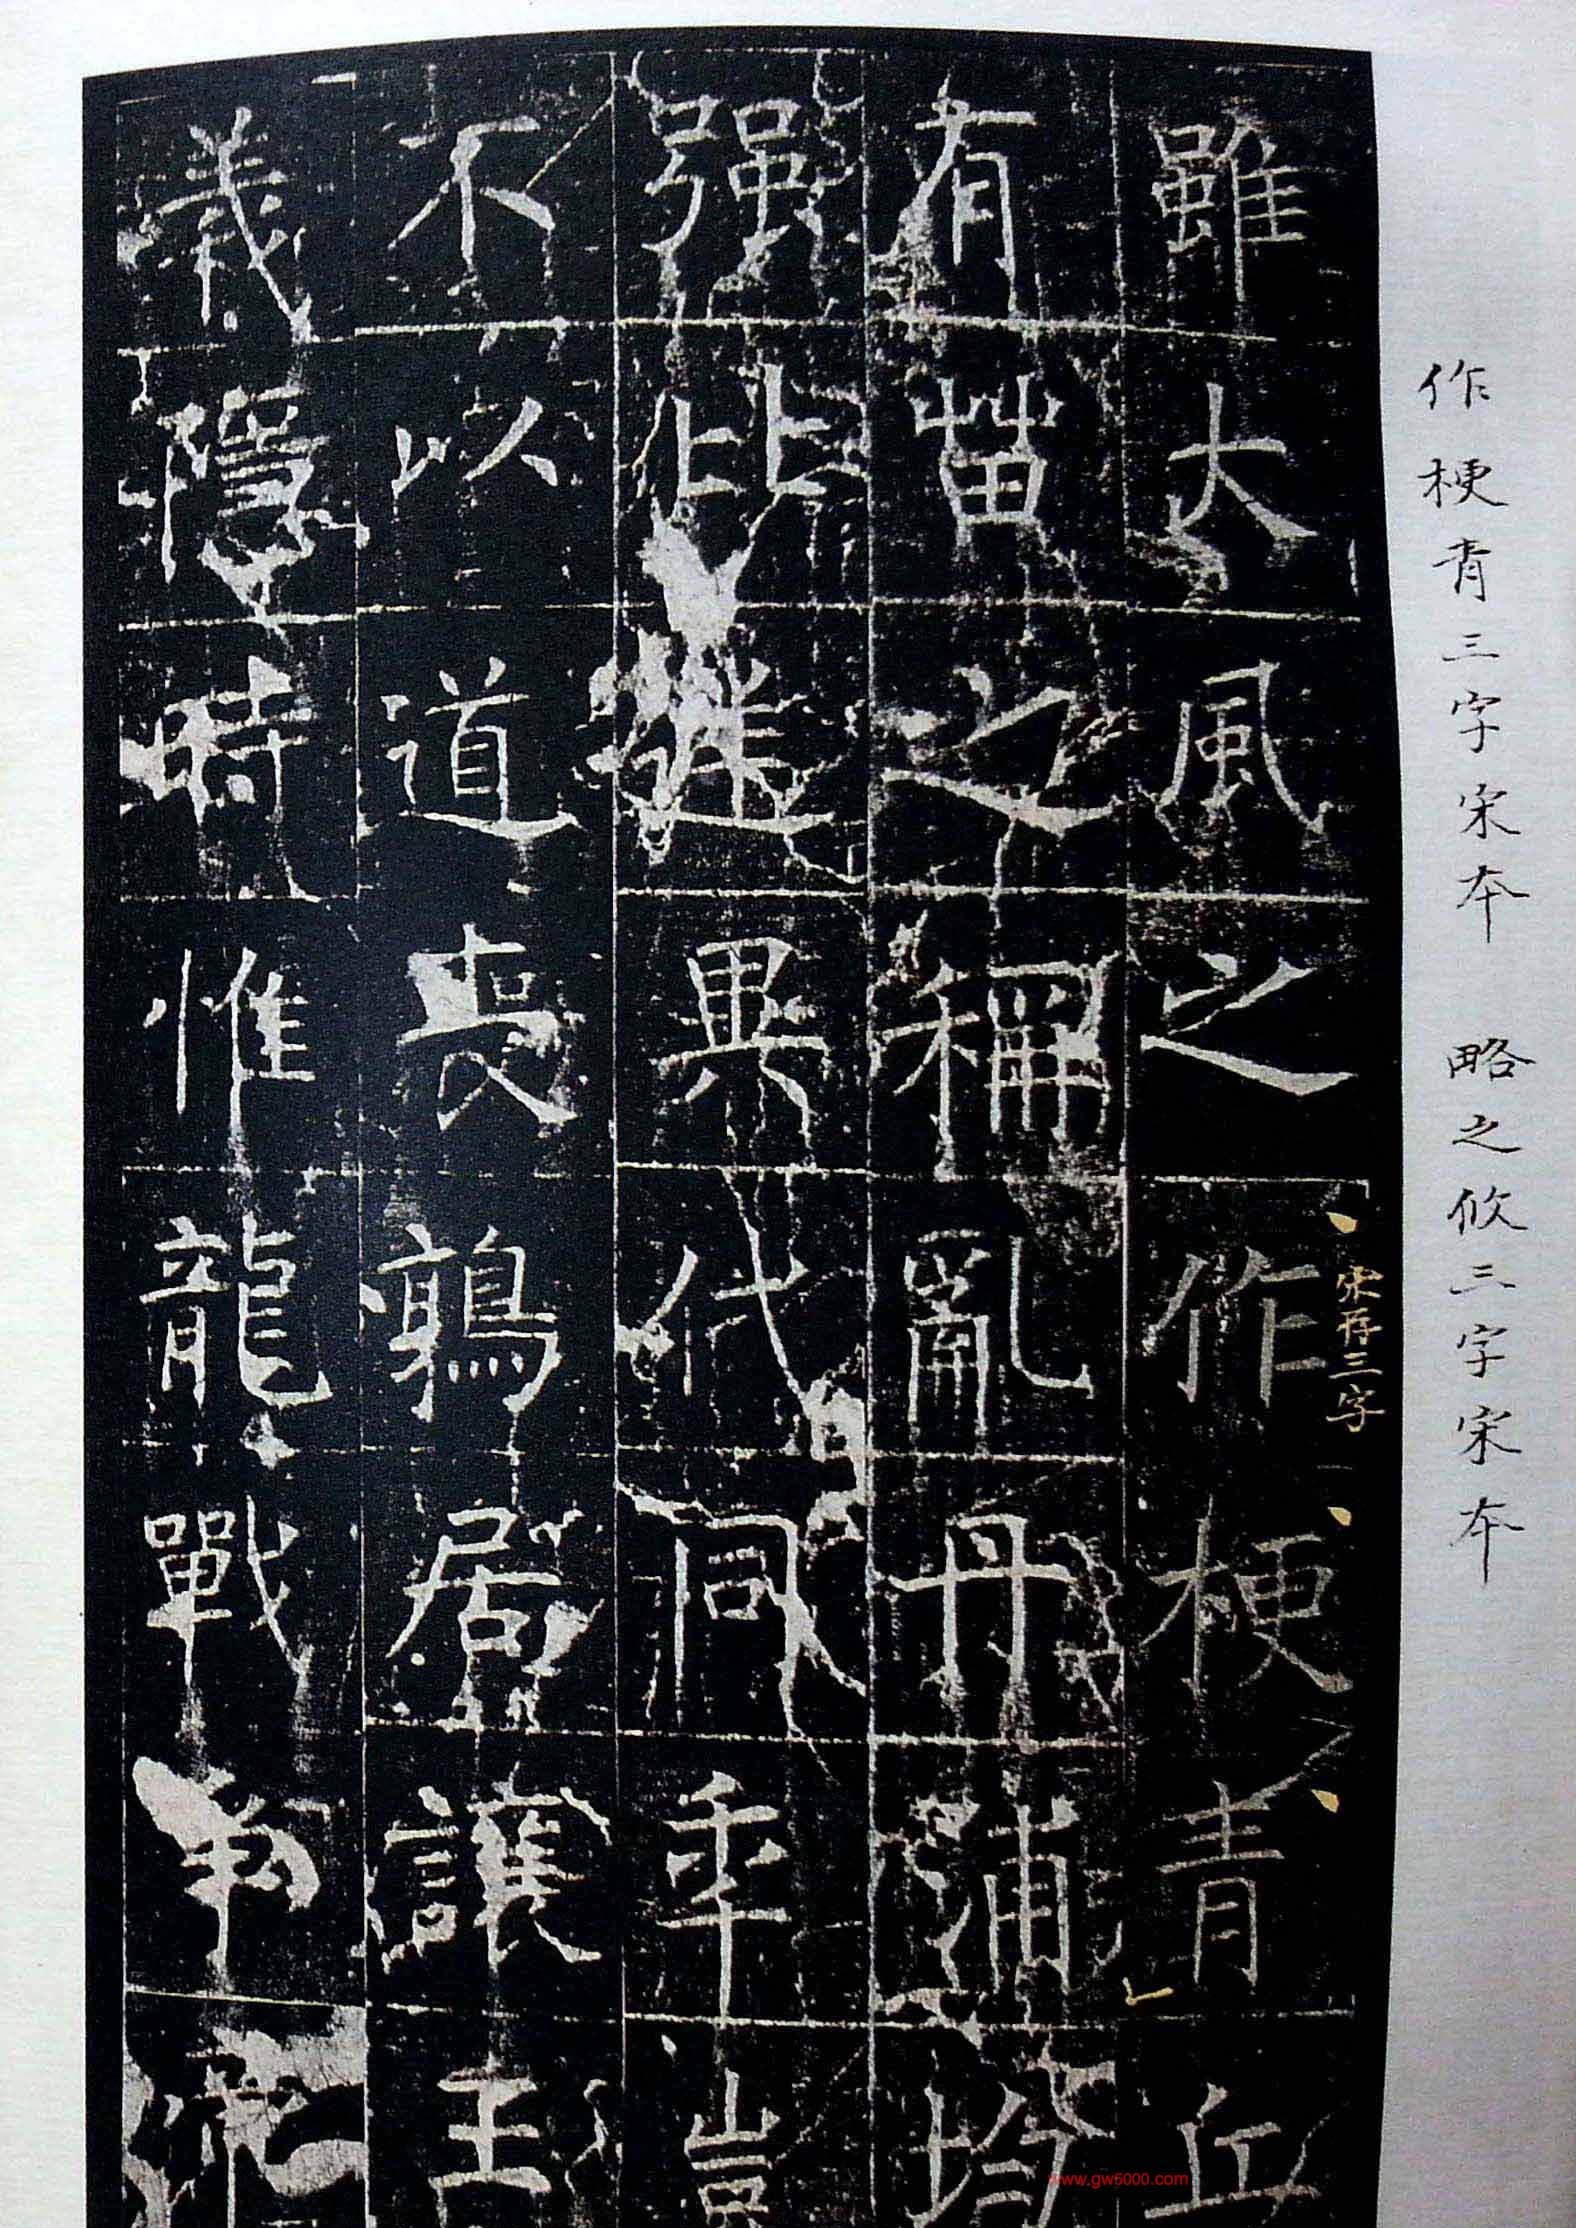 作梗青三字宋本　略之攸三字宋本
宋存三字
雖大風之作梗青丘
有苗之稱亂丹浦均
强比異代同秊豈
不以道喪鶉居讓王
義隱時惟龍戰爭
www.gw6000.com